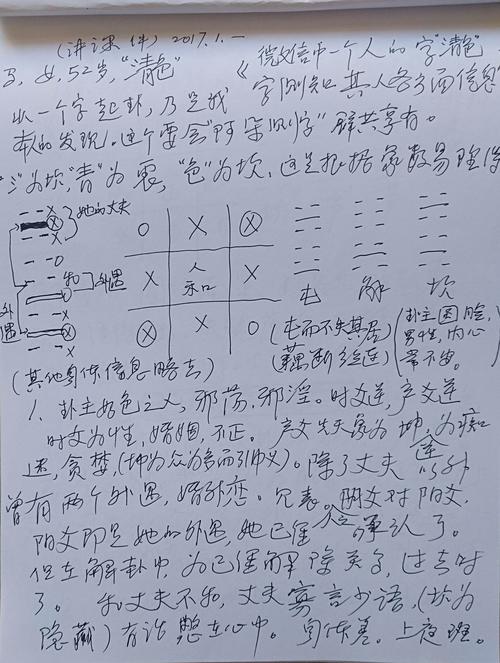 (讲课件) 2017.1.一
女,52岁,"清色" 《微信中一个人的字"清色"
从一个字起卦,乃是我 字测知其人各方面信息
本的发现。这个要会"阿朵测字"群共享有。
"氵"为坎,"青"为裏,"色"为坎,这是根据象数易理
她的丈夫
○ × ⊗
和 外遇
外遇
× 人 ×
⊗ × ○
屯 解 坎
(屯而不失其居) (卦主圆脸,
(藕断丝连) 男性,内心
常不安。)
(其他身体信息略去)
1、卦主好色之人,邪荡,邪淫。时爻逆,产爻逆
时爻为性,婚姻,不正。产爻先天象为坤,为痴
迷,贪婪,(坤为众为多而引申义)。除了丈夫以外
曾有两个外遇,婚外恋。兄表。阴爻对阳爻,
阳爻即是她的外遇,她已经承认了。
但在解卦中,为已经解除关了,过去时
了。和丈夫不和,丈夫寡言少语,(坎为
隐藏)有话憋在心中。身体差。上夜班。